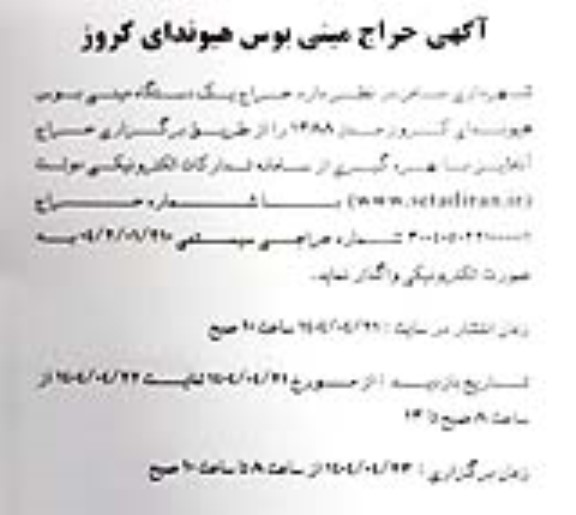 آگهی حراج مینی بوس هیوندای کروز
شهرداری در نظر دارد حراج یک دستگاه مینی بوس
هیوندای کروز مدل ۱۳۸۸ را از طریق برگزاری حراج
آنلاین با بهره گیری از سامانه تدارکات الکترونیکی دولت
(www.setadiran.ir) با شماره حراج
شماره حراجی سیستمی به
صورت الکترونیکی واگذار نماید.
زمان انتشار در سایت : ۱۴۰۴/۰۴/۲۱ ساعت ۱۰ صبح
تاریخ بازدید : از مورخ ۱۴۰۴/۰۴/۲۱ لغایت ۱۴۰۴/۰۴/۲۲ از
ساعت ۸ صبح تا ۱۳
زمان برگزاری : ۱۴۰۴/۰۴/۲۳ از ساعت ۸ تا ساعت ۱۰ صبح